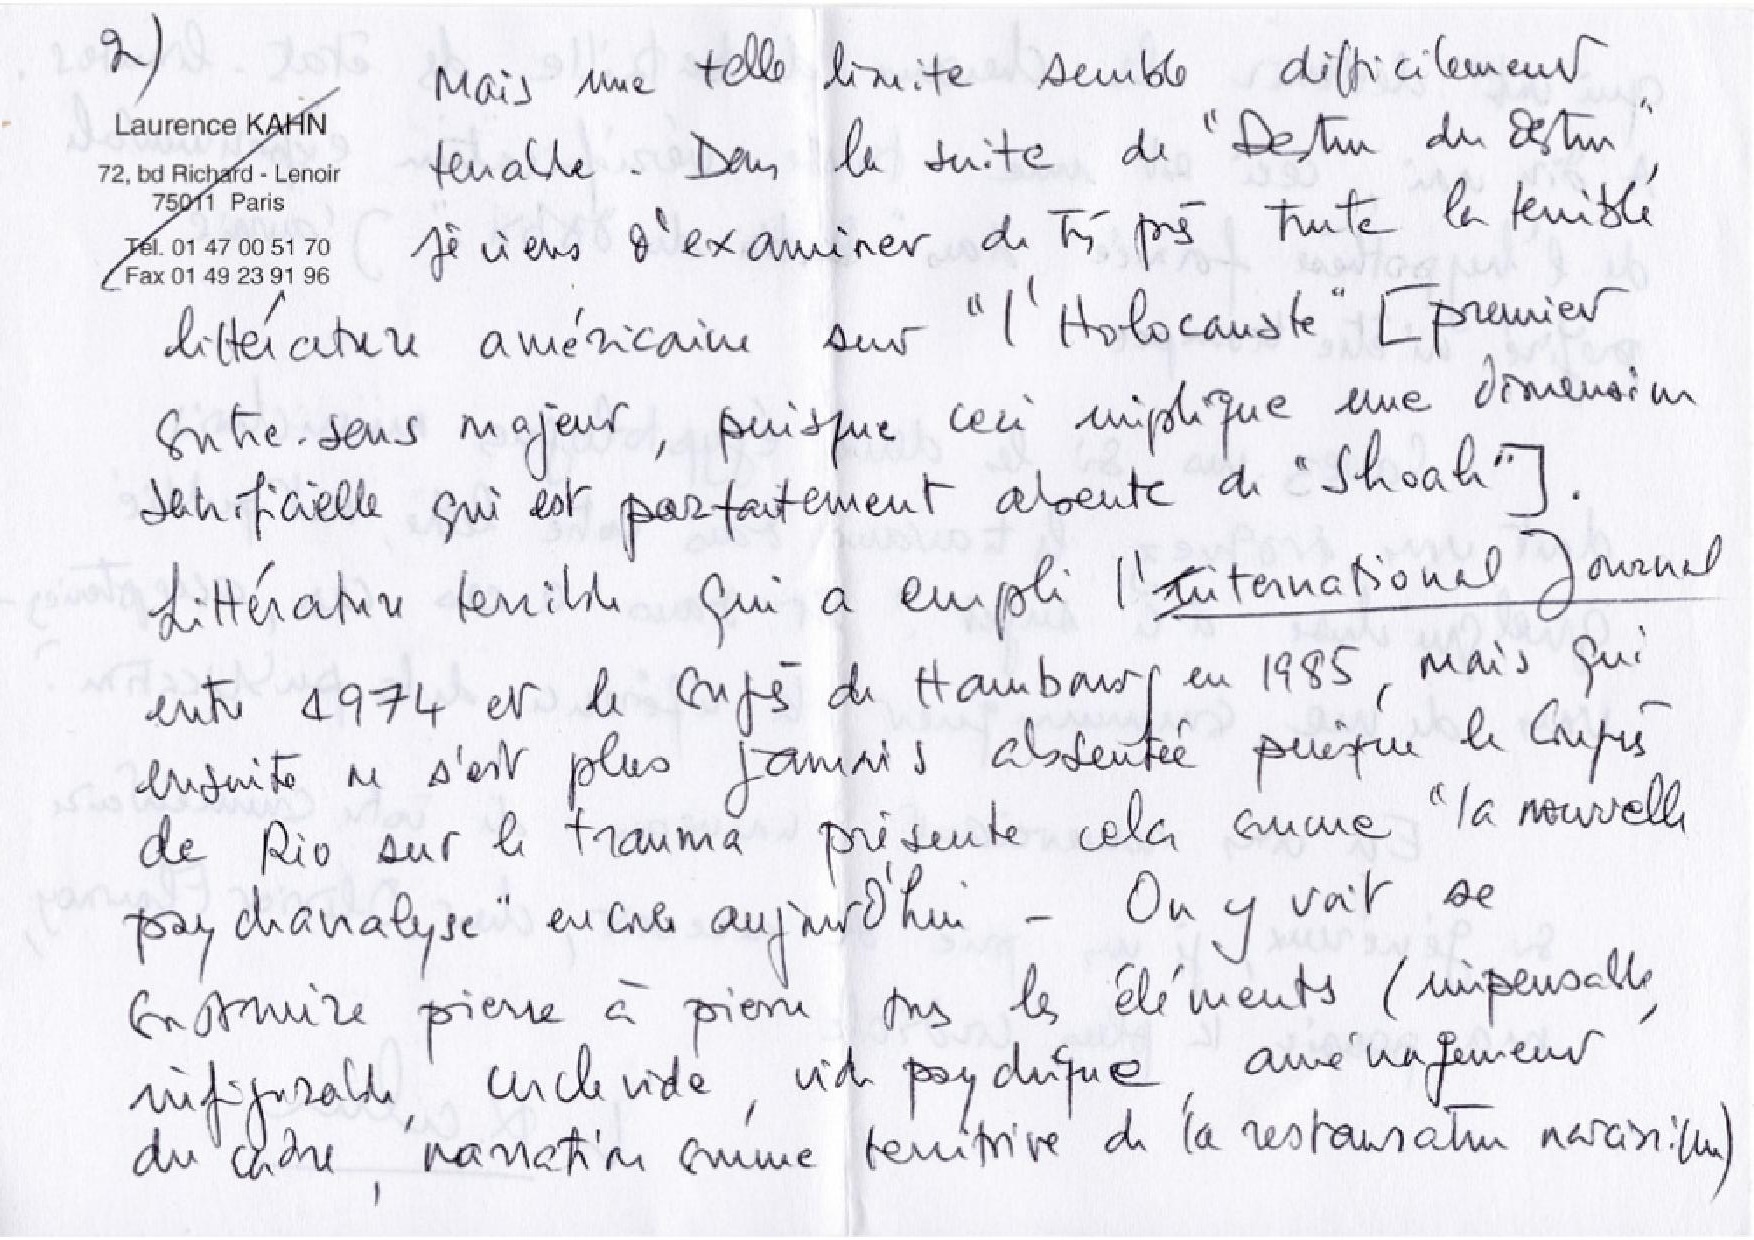 2)
Laurence KAHN
72, bd Richard - Lenoir
75011 Paris
Tél. 01 47 00 51 70
Fax 01 49 23 91 96
Mais une telle limite semble difficilement
tenable. Dans la suite de "Destin du destin",
je viens d'examiner de très près toute la terrible
littérature américaine sur "l'Holocauste" [premier
contre-sens majeur, puisque ceci implique une dimension
sacrificielle qui est parfaitement absente de "Shoah"].
Littérature terrible qui a empli l'International Journal
entre 1974 et le congrès de Hambourg en 1985, mais qui
ensuite ne s'est plus jamais absentée puisque le Congrès
de Rio sur le trauma présente cela comme "la nouvelle
psychanalyse" encore aujourd'hui - On y voit se
construire pierre à pierre tous les éléments (impensable,
infigurable, cercle vide, vide psychique, aménagement
du cadre, narration comme territoire de la restauration narcissique)